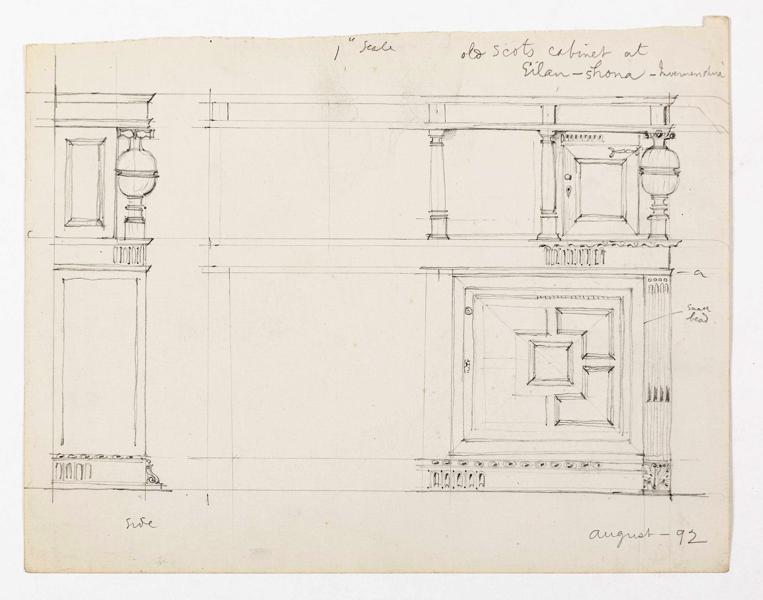 1" Scale
old Scots cabinet at
Eilan-shona - Invernessshire
a
small
bead
side
august - 92